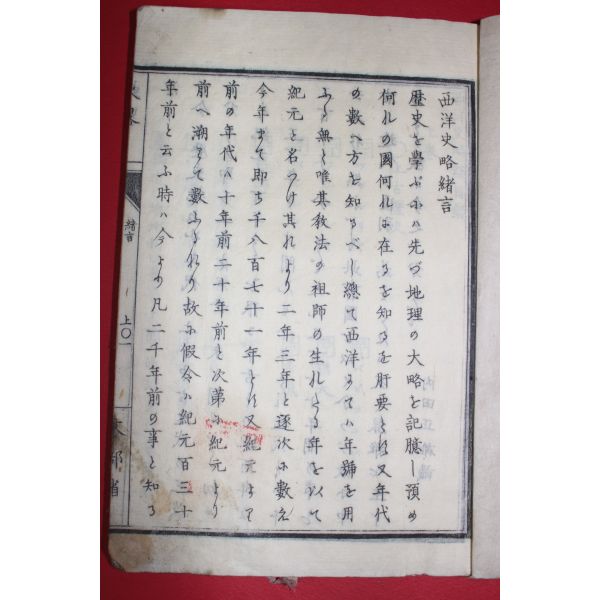 西洋史略緒言
歴史を學ぶにハ先づ地理の大略を記臆し預め
何れの國何れに在るを知るを肝要とす又年代
の数へ方を知るべし總て西洋にてハ年號を用
ふる無く唯其教法の祖師の生れたる年を以て
紀元と名つけ其れより二年三年と逐次に數え
今年まて即ち千八百七十一年とす又紀元より
前の年代ハ十年前二十年前と次第に紀元より
前へ溯りて數ふるなり故に假令ハ紀元百三十
年前と云ふ時ハ今より凡二千年前の事と知る
緒言
上〇一
文部省